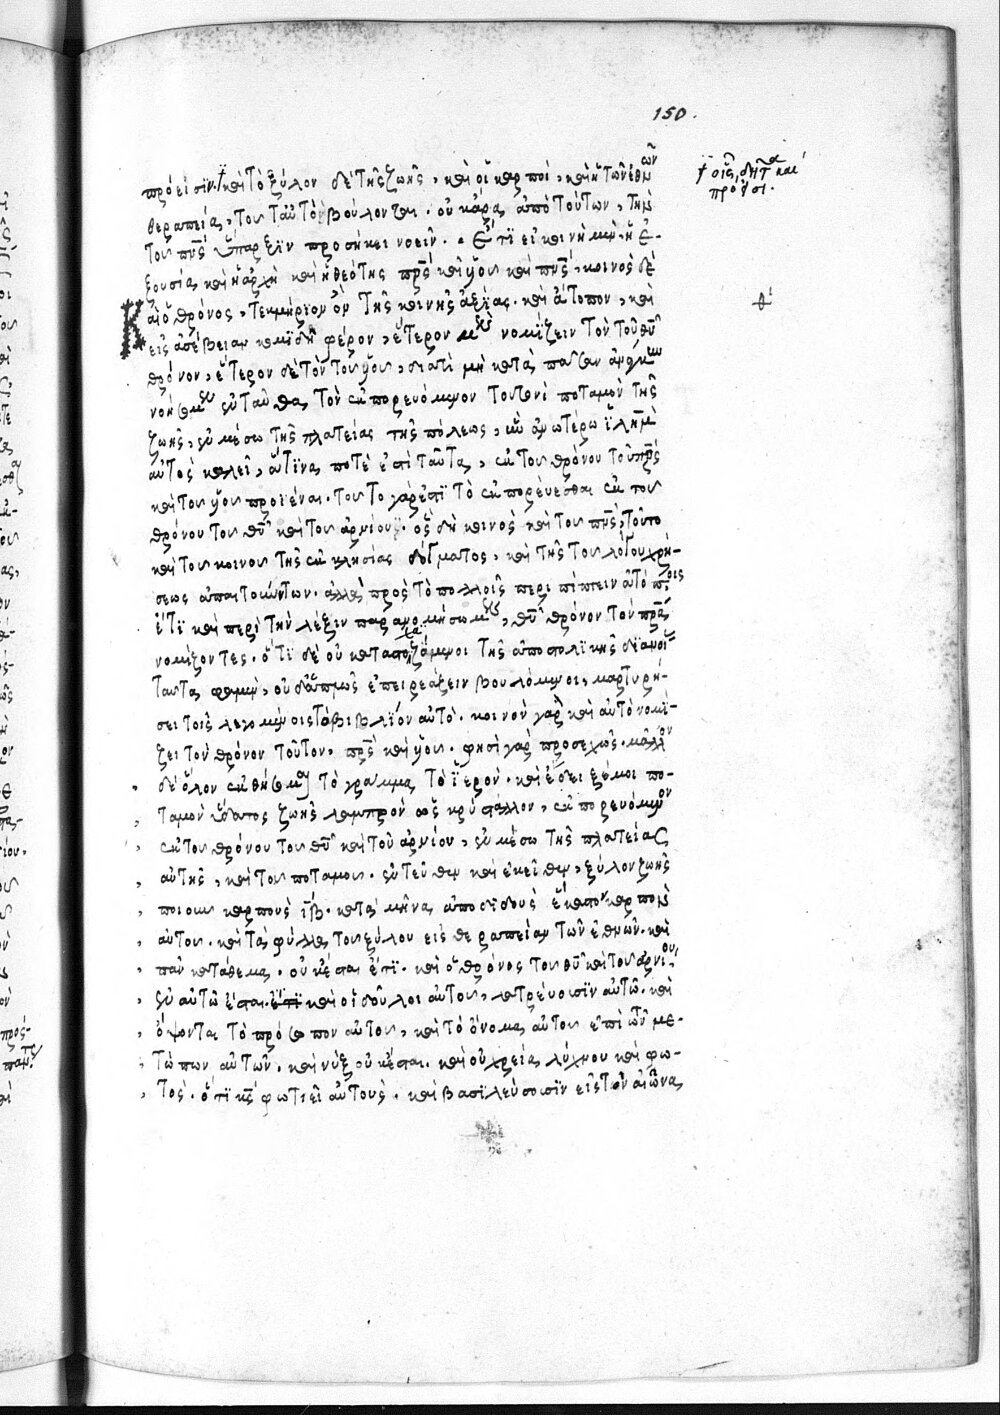 150.
πρόεισιν. καὶ τὸ ξύλον δὲ τῆς ζωῆς, καὶ οἱ καρποί, καὶ ἡ τῶν ἐθνῶν
οἷς, δῆτα καὶ
πρόεισι.
θεραπεία, τοῦ ταυτὸ βούλονται. οὐκ ἄρα ἀπὸ τούτων, τὴν
τοῦ πνς ὕπαρξιν προσήκει νοεῖν. Ἔτι εἰ κοινὴ μὲν ἡ ἐ-
ξουσία, καὶ ἡ ἀρχὴ καὶ ἡ θεότης πρς καὶ υἱοῦ καὶ πνς, κοινὸς δὲ
θ
καὶ ὁ θρόνος, τεκμήριον ὢν τῆς κοινῆς ἀξίας. καὶ ἄτοπον, καὶ
εἰς ἀσέβειαν κομιδῇ φέρον, ἕτερον μὲν νομίζειν τὸν τοῦ θυ
θρόνον, ἕτερον δὲ τὸν τοῦ υἱοῦ, διατί μὴ κατὰ πᾶσαν ἀνάγκην
νοήσομεν ἐνταῦθα τὸν ἐκπορευόμενον τουτονὶ ποταμὸν τῆς
ζωῆς, ἐν μέσω τῆς πλατείας τῆς πόλεως, ἣν ἀνωτέρω ἱλημ
αὐτὸς καλεῖ, ἅτινα ποτὲ ἐστὶ ταῦτα, ἐκ τοῦ θρόνου τοῦ πρς
καὶ τοῦ υἱοῦ προϊέναι. τοῦτο γάρ ἐστι τὸ ἐκπορεύεσθαι ἐκ τοῦ
θρόνου τοῦ θυ καὶ τοῦ ἀρνίου. ὃς δὴ κοινὸς καὶ τοῦ πνς, τοῦτο
καὶ τοῦ κοινοῦ τῆς ἐκκλησίας δόγματος, καὶ τῆς τοῦ λόγου χρή-
σεως ἀπαιτούντων. ἀλλὰ πρὸς τὸ πολλοῖς περιπίπτειν ἀτόποις
ἔτι καὶ περὶ τὴν λέξιν παρανομήσομεν, θυ θρόνον τὸν πρα
νομίζοντες. ὅτι δὲ οὐ καταστοχαζόμενοι τῆς ἀποστολικῆς διανοίας
ταῦτα φαμὲν, οὐδ' ἄλλως ἐπηρεάζειν βουλόμενοι, μαρτυρή-
σει τοῖς λεγομένοις τὸ βιβλίον αὐτό. κοινὸν γὰρ καὶ αὐτὸ νομί-
ζει τὸν θρόνον τοῦτον, πρς καὶ υἱοῦ. φησὶ γὰρ προσεχῶς. μᾶλλον
δὲ ὅλον ἐκθήσομαι τὸ γράμμα τὸ ἱερόν. καὶ ἔδειξέ μοι πο-
ταμὸν ὕδατος ζωῆς λαμπρὸν ὡς κρύσταλλον, ἐκπορευόμενον
ἐκ τοῦ θρόνου τοῦ θυ καὶ τοῦ ἀρνίου, ἐν μέσω τῆς πλατείας
αὐτῆς, καὶ τοῦ ποταμοῦ. ἐντεῦθεν καὶ ἐκεῖθεν, ξύλον ζωῆς
ποιοῦν καρποὺς ιβ. κατὰ μῆνα ἀποδιδοὺς ἕκαστον καρπὸν
αὐτοῦ. καὶ τὰ φύλλα τοῦ ξύλου εἰς θεραπείαν τῶν ἐθνῶν. καὶ
πᾶν κατάθεμα, οὐκ ἔσται ἔτι. καὶ ὁ θρόνος τοῦ θυ καὶ τοῦ ἀρνίου
ἐν αὐτῶ ἔσται. ἔτι καὶ οἱ δοῦλοι αὐτοῦ, λατρεύσουσιν αὐτῶ. καὶ
ὄψονται τὸ πρόσωπον αὐτοῦ, καὶ τὸ ὄνομα αὐτοῦ ἐπὶ τῶν με-
τώπων αὐτῶν. καὶ νὺξ οὐκ ἔσται. καὶ οὐ χρεία λύχνου καὶ φω-
τός. ὅτι κς φωτιεῖ αὐτούς. καὶ βασιλεύσουσιν εἰς τὸν αἰῶνα